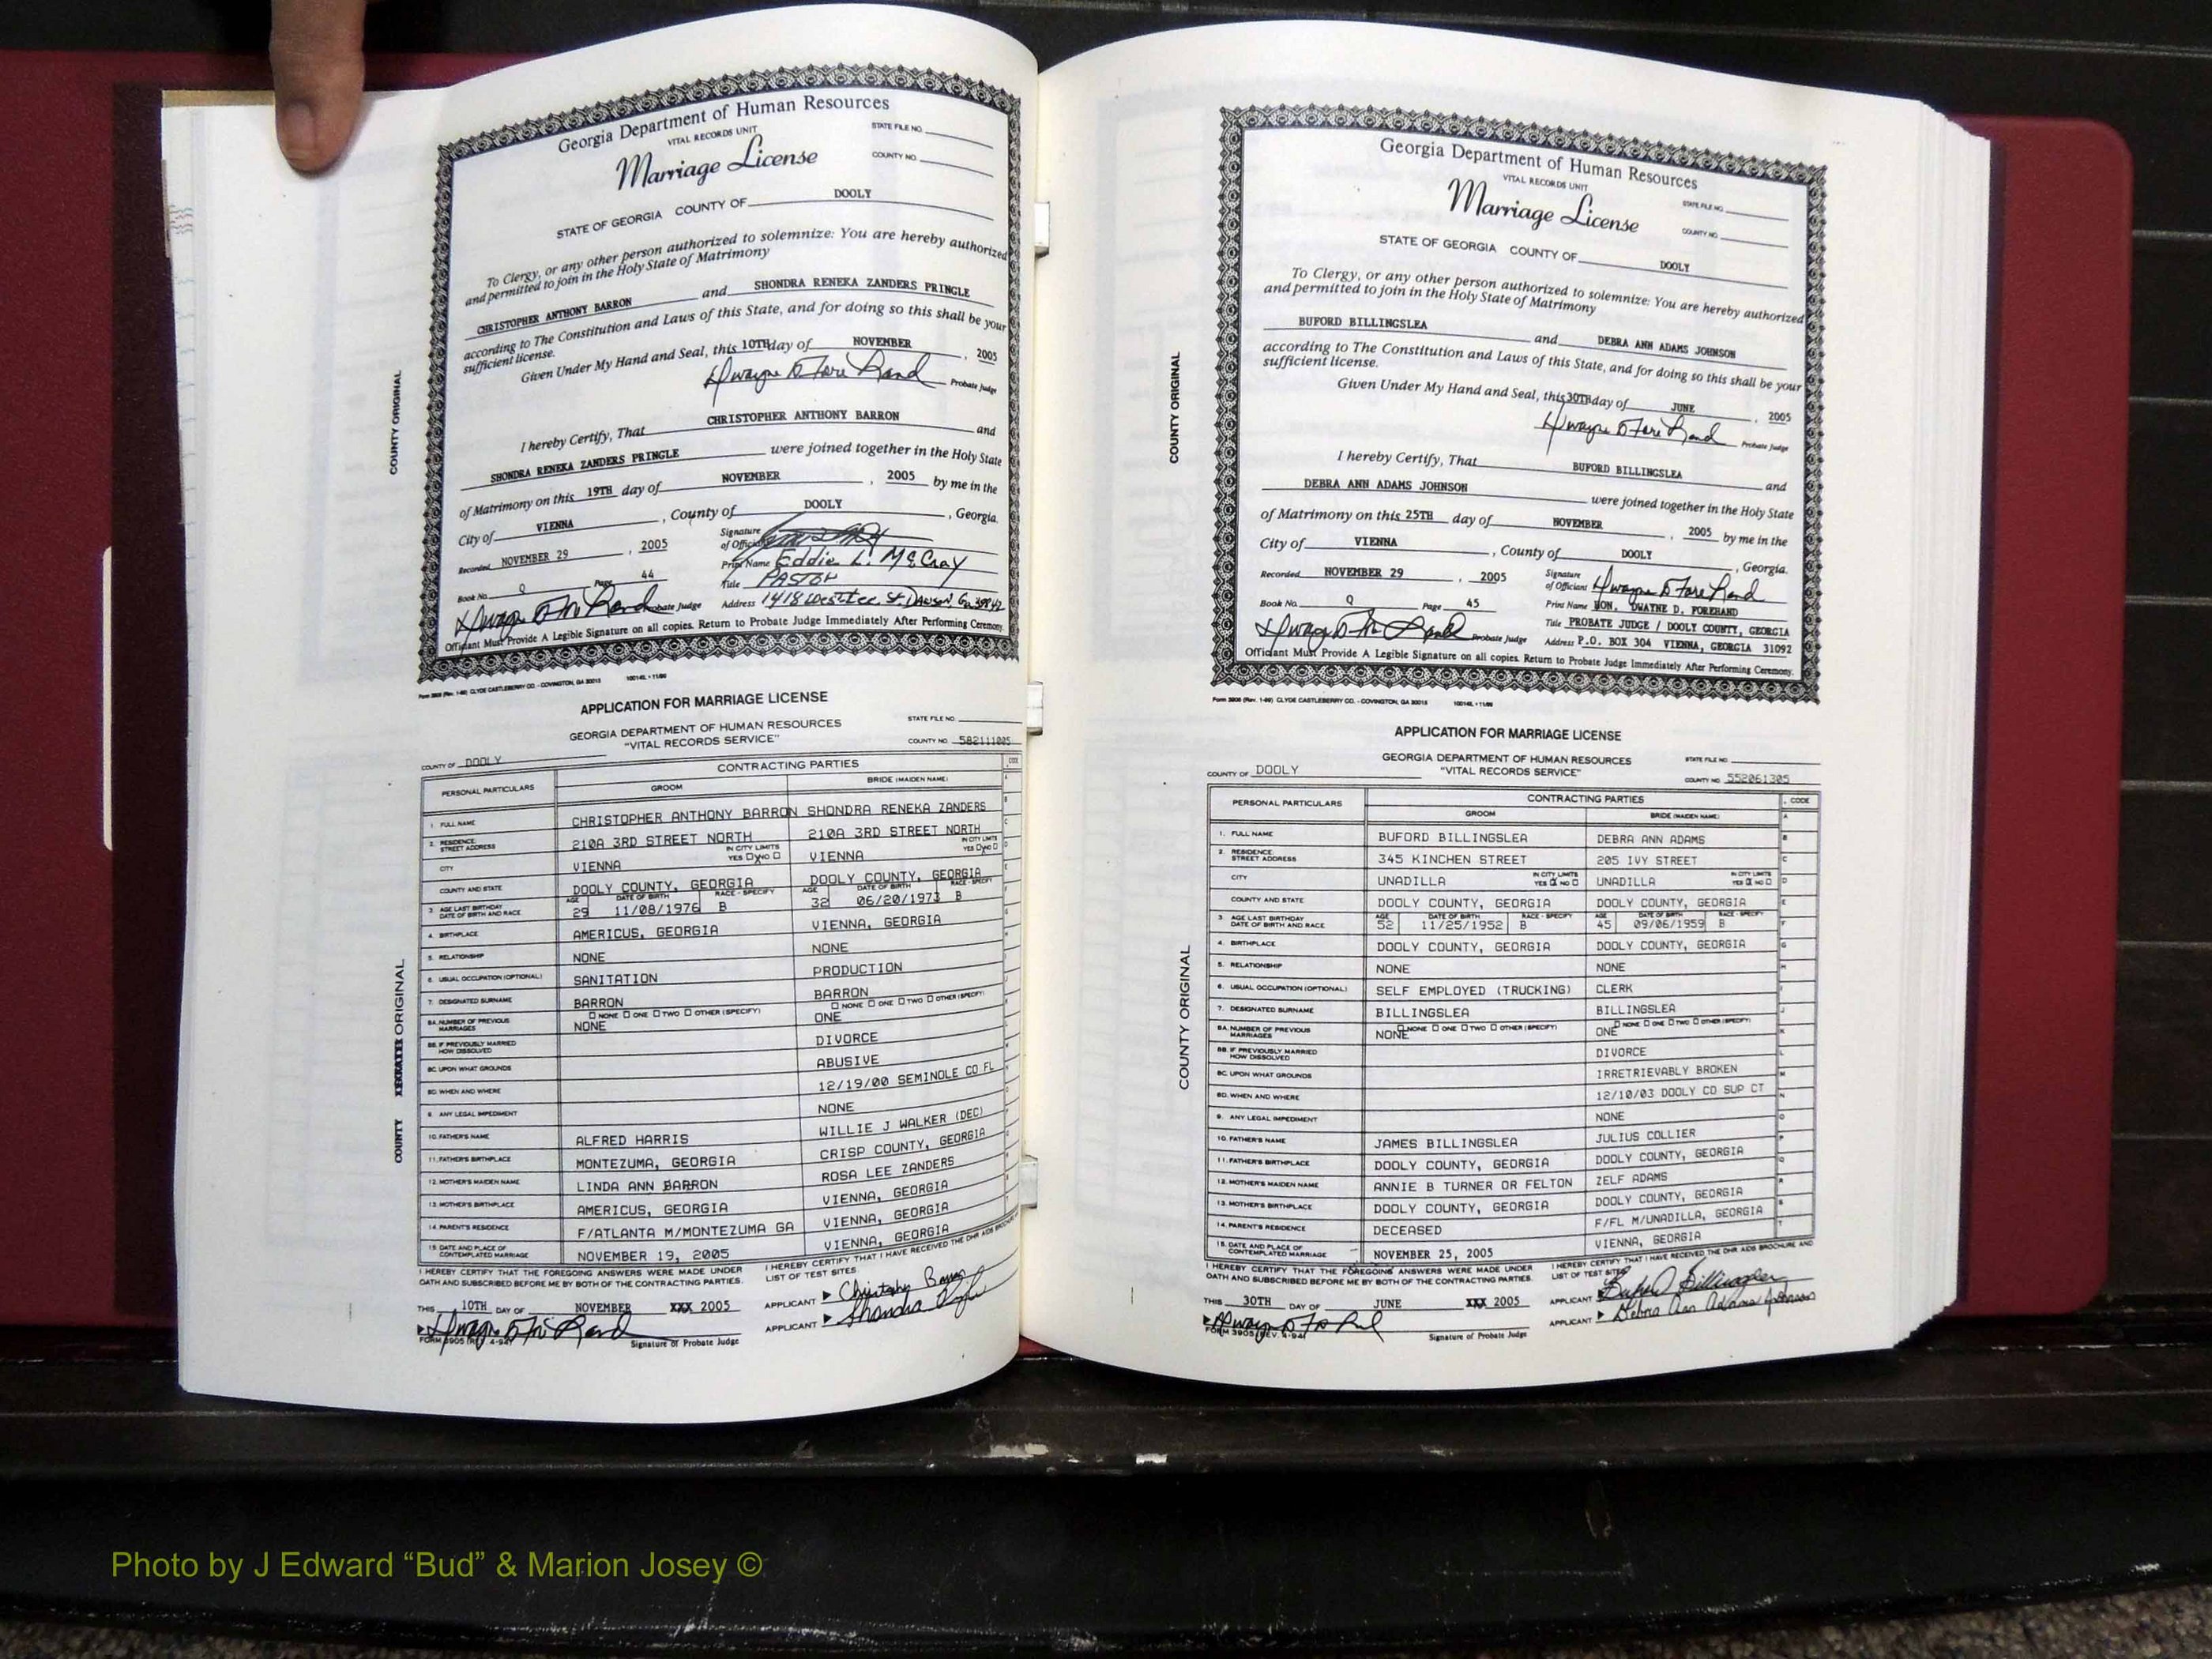 Georgia Department of Human Resources
VITAL RECORDS UNIT
STATE FILE NO.
Marriage License
COUNTY NO.
STATE OF GEORGIA COUNTY OF DOOLY
To Clergy, or any other person authorized to solemnize: You are hereby authorized
and permitted to join in the Holy State of Matrimony
CHRISTOPHER ANTHONY BARRON and SHONDRA RENEKA ZANDERS PRINGLE
according to The Constitution and Laws of this State, and for doing so this shall be your
sufficient license.
Given Under My Hand and Seal, this 10TH day of NOVEMBER , 2005
Probate Judge
I hereby Certify, That CHRISTOPHER ANTHONY BARRON and
SHONDRA RENEKA ZANDERS PRINGLE were joined together in the Holy State
of Matrimony on this 19TH day of NOVEMBER , 2005 by me in the
City of VIENNA , County of DOOLY , Georgia.
Recorded NOVEMBER 29 , 2005 Signature of Official
Print Name Eddie L. McCray
Book No. Q Page 44 Title PASTOR
Probate Judge Address 1418 West Lee St. Dawson, Ga. 39842
Officiant Must Provide A Legible Signature on all copies. Return to Probate Judge Immediately After Performing Ceremony.
Form 3908 (Rev. 1-99) CLYDE CASTLEBERRY CO. - COVINGTON, GA 30015
COUNTY ORIGINAL
APPLICATION FOR MARRIAGE LICENSE
GEORGIA DEPARTMENT OF HUMAN RESOURCES
"VITAL RECORDS SERVICE"
STATE FILE NO.
COUNTY NO. 582111005
COUNTY OF DOOLY
PERSONAL PARTICULARS CONTRACTING PARTIES CODE
GROOM BRIDE (MAIDEN NAME)
1. FULL NAME CHRISTOPHER ANTHONY BARRON SHONDRA RENEKA ZANDERS
2. RESIDENCE STREET ADDRESS 210A 3RD STREET NORTH 210A 3RD STREET NORTH
CITY VIENNA IN CITY LIMITS YES X NO VIENNA IN CITY LIMITS YES X NO
COUNTY AND STATE DOOLY COUNTY, GEORGIA DOOLY COUNTY, GEORGIA
3. AGE LAST BIRTHDAY DATE OF BIRTH AND RACE AGE 29 DATE OF BIRTH 11/08/1976 RACE - SPECIFY B AGE 32 DATE OF BIRTH 06/20/1973 RACE - SPECIFY B
4. BIRTHPLACE AMERICUS, GEORGIA VIENNA, GEORGIA
5. RELATIONSHIP NONE NONE
6. USUAL OCCUPATION (OPTIONAL) SANITATION PRODUCTION
7. DESIGNATED SURNAME BARRON BARRON
8A. NUMBER OF PREVIOUS MARRIAGES NONE ONE TWO OTHER (SPECIFY) NONE NONE ONE TWO OTHER (SPECIFY) ONE
8B. IF PREVIOUSLY MARRIED HOW DISSOLVED DIVORCE
8C. UPON WHAT GROUNDS ABUSIVE
8D. WHEN AND WHERE 12/19/00 SEMINOLE CO FL
9. ANY LEGAL IMPEDIMENT NONE
10. FATHER'S NAME ALFRED HARRIS WILLIE J WALKER (DEC)
11. FATHER'S BIRTHPLACE MONTEZUMA, GEORGIA CRISP COUNTY, GEORGIA
12. MOTHER'S MAIDEN NAME LINDA ANN BARRON ROSA LEE ZANDERS
13. MOTHER'S BIRTHPLACE AMERICUS, GEORGIA VIENNA, GEORGIA
14. PARENT'S RESIDENCE F/ATLANTA M/MONTEZUMA GA VIENNA, GEORGIA
15. DATE AND PLACE OF CONTEMPLATED MARRIAGE NOVEMBER 19, 2005 VIENNA, GEORGIA
I HEREBY CERTIFY THAT THE FOREGOING ANSWERS WERE MADE UNDER
OATH AND SUBSCRIBED BEFORE ME BY BOTH OF THE CONTRACTING PARTIES.
I HEREBY CERTIFY THAT I HAVE RECEIVED THE DHR AIDS BROCHURE AND
LIST OF TEST SITES.
THIS 10TH DAY OF NOVEMBER XXX 2005
APPLICANT Christopher Barron
APPLICANT Shondra Pringle
FORM 3905 (REV. 4-94) Signature of Probate Judge
COUNTY ORIGINAL
Georgia Department of Human Resources
VITAL RECORDS UNIT
STATE FILE NO.
Marriage License
COUNTY NO.
STATE OF GEORGIA COUNTY OF DOOLY
To Clergy, or any other person authorized to solemnize: You are hereby authorized
and permitted to join in the Holy State of Matrimony
BUFORD BILLINGSLEA and DEBRA ANN ADAMS JOHNSON
according to The Constitution and Laws of this State, and for doing so this shall be your
sufficient license.
Given Under My Hand and Seal, this 30TH day of JUNE , 2005
Probate Judge
I hereby Certify, That BUFORD BILLINGSLEA and
DEBRA ANN ADAMS JOHNSON were joined together in the Holy State
of Matrimony on this 25TH day of NOVEMBER , 2005 by me in the
City of VIENNA , County of DOOLY , Georgia.
Recorded NOVEMBER 29 , 2005 Signature of Officiant
Print Name HON. DWAYNE D. FOREHAND
Book No. Q Page 45 Title PROBATE JUDGE / DOOLY COUNTY, GEORGIA
Probate Judge Address P.O. BOX 304 VIENNA, GEORGIA 31092
Officiant Must Provide A Legible Signature on all copies. Return to Probate Judge Immediately After Performing Ceremony.
Form 3908 (Rev. 1-99) CLYDE CASTLEBERRY CO. - COVINGTON, GA 30015
COUNTY ORIGINAL
APPLICATION FOR MARRIAGE LICENSE
GEORGIA DEPARTMENT OF HUMAN RESOURCES
"VITAL RECORDS SERVICE"
STATE FILE NO.
COUNTY NO. 552061305
COUNTY OF DOOLY
PERSONAL PARTICULARS CONTRACTING PARTIES CODE
GROOM BRIDE (MAIDEN NAME)
1. FULL NAME BUFORD BILLINGSLEA DEBRA ANN ADAMS
2. RESIDENCE STREET ADDRESS 345 KINCHEN STREET 205 IVY STREET
CITY UNADILLA IN CITY LIMITS YES X NO UNADILLA IN CITY LIMITS YES X NO
COUNTY AND STATE DOOLY COUNTY, GEORGIA DOOLY COUNTY, GEORGIA
3. AGE LAST BIRTHDAY DATE OF BIRTH AND RACE AGE 52 DATE OF BIRTH 11/25/1952 RACE - SPECIFY B AGE 45 DATE OF BIRTH 09/06/1959 RACE - SPECIFY B
4. BIRTHPLACE DOOLY COUNTY, GEORGIA DOOLY COUNTY, GEORGIA
5. RELATIONSHIP NONE NONE
6. USUAL OCCUPATION (OPTIONAL) SELF EMPLOYED (TRUCKING) CLERK
7. DESIGNATED SURNAME BILLINGSLEA BILLINGSLEA
8A. NUMBER OF PREVIOUS MARRIAGES NONE NONE ONE TWO OTHER (SPECIFY) ONE NONE ONE TWO OTHER (SPECIFY)
8B. IF PREVIOUSLY MARRIED HOW DISSOLVED DIVORCE
8C. UPON WHAT GROUNDS IRRETRIEVABLY BROKEN
8D. WHEN AND WHERE 12/10/03 DOOLY CO SUP CT
9. ANY LEGAL IMPEDIMENT NONE
10. FATHER'S NAME JAMES BILLINGSLEA JULIUS COLLIER
11. FATHER'S BIRTHPLACE DOOLY COUNTY, GEORGIA DOOLY COUNTY, GEORGIA
12. MOTHER'S MAIDEN NAME ANNIE B TURNER OR FELTON ZELF ADAMS
13. MOTHER'S BIRTHPLACE DOOLY COUNTY, GEORGIA DOOLY COUNTY, GEORGIA
14. PARENT'S RESIDENCE DECEASED F/FL M/UNADILLA, GEORGIA
15. DATE AND PLACE OF CONTEMPLATED MARRIAGE NOVEMBER 25, 2005 VIENNA, GEORGIA
I HEREBY CERTIFY THAT THE FOREGOING ANSWERS WERE MADE UNDER
OATH AND SUBSCRIBED BEFORE ME BY BOTH OF THE CONTRACTING PARTIES.
I HEREBY CERTIFY THAT I HAVE RECEIVED THE DHR AIDS BROCHURE AND
LIST OF TEST SITES.
THIS 30TH DAY OF JUNE XXX 2005
APPLICANT Buford Billingslea
APPLICANT Debra Ann Adams Johnson
FORM 3905 (REV. 4-94) Signature of Probate Judge
COUNTY ORIGINAL
Photo by J Edward “Bud” & Marion Josey ©